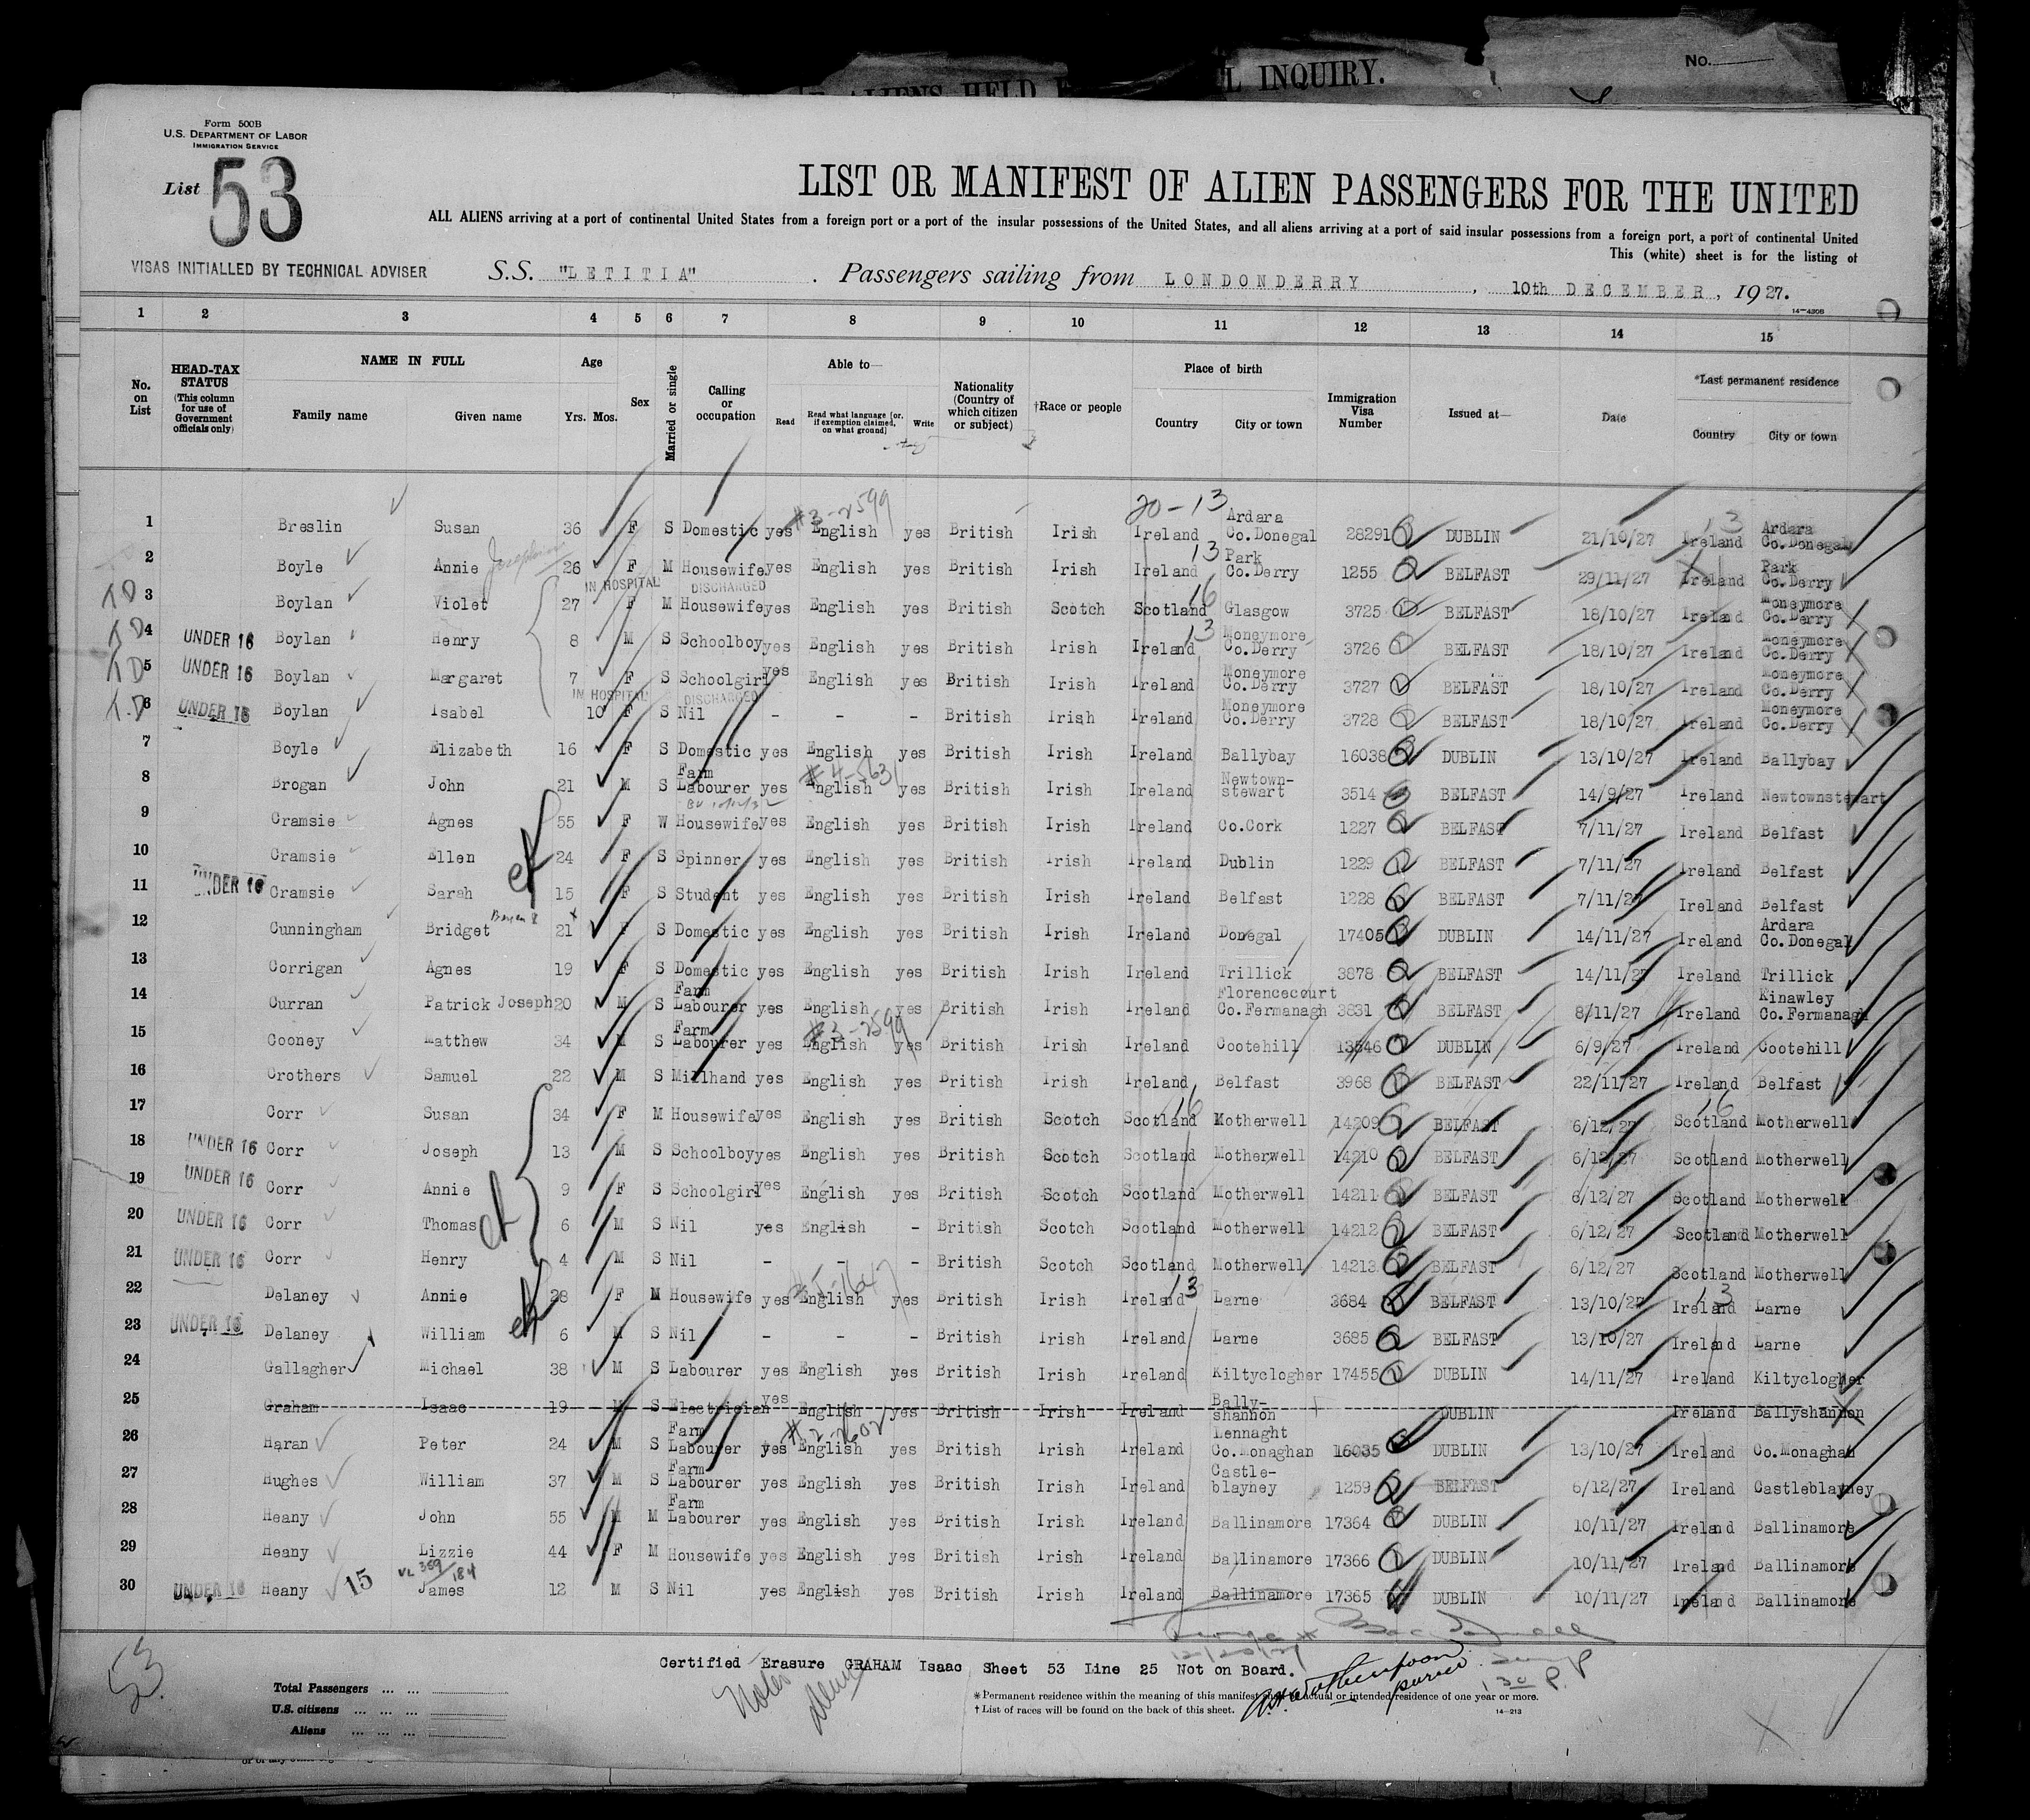 ALIENS HELD
L INQUIRY.
No.
Form 500B
U.S. DEPARTMENT OF LABOR
IMMIGRATION SERVICE
List 53
LIST OR MANIFEST OF ALIEN PASSENGERS FOR THE UNITED
ALL ALIENS arriving at a port of continental United States from a foreign port or a port of the insular possessions of the United States, and all aliens arriving at a port of said insular possessions from a foreign port, a port of continental United
This (white) sheet is for the listing of
VISAS INITIALLED BY TECHNICAL ADVISER
S.S. "LETITIA" . Passengers sailing from LONDONDERRY , 10th DECEMBER, 1927.
14—420B
1 2 3 4 5 6 7 8 9 10 11 12 13 14 15
No. on List
HEAD-TAX STATUS (This column for use of Government officials only)
NAME IN FULL
Family name Given name
Age
Yrs. Mos.
Sex
Married or single
Calling or occupation
Able to—
Read
Read what language [or, if exemption claimed, on what ground]
Write
Nationality (Country of which citizen or subject)
†Race or people
Place of birth
Country City or town
Immigration Visa Number
Issued at—
Date
*Last permanent residence
Country City or town
#3-2599 20-13 13
1 Breslin Susan 36 F S Domestic yes English yes British Irish Ireland Ardara Co.Donegal 28291 DUBLIN 21/10/27 Ireland Ardara Co.Donegal
Josephine 13
2 Boyle Annie 26 F M Housewife yes English yes British Irish Ireland Park Co.Derry 1255 BELFAST 29/11/27 Ireland Park Co.Derry
IN HOSPITAL DISCHARGED 16
TD 3 Boylan Violet 27 F M Housewife yes English yes British Scotch Scotland Glasgow 3725 BELFAST 18/10/27 Ireland Moneymore Co.Derry
13
TD 4 UNDER 16 Boylan Henry 8 M S Schoolboy yes English yes British Irish Ireland Moneymore Co.Derry 3726 BELFAST 18/10/27 Ireland Moneymore Co.Derry
TD 5 UNDER 16 Boylan Margaret 7 F S Schoolgirl yes English yes British Irish Ireland Moneymore Co.Derry 3727 BELFAST 18/10/27 Ireland Moneymore Co.Derry
IN HOSPITAL DISCHARGED
T.D 6 UNDER 16 Boylan Isabel 10 F S Nil - - - British Irish Ireland Moneymore Co.Derry 3728 BELFAST 18/10/27 Ireland Moneymore Co.Derry
7 Boyle Elizabeth 16 F S Domestic yes English yes British Irish Ireland Ballybay 16038 DUBLIN 13/10/27 Ireland Ballybay
#4-5631
8 Brogan John 21 M S Farm Labourer yes English yes British Irish Ireland Newtown-stewart 3514 BELFAST 14/9/27 Ireland Newtownstewart
9 Cramsie Agnes 55 F W Housewife yes English yes British Irish Ireland Co.Cork 1227 BELFAST 7/11/27 Ireland Belfast
10 Cramsie Ellen 24 F S Spinner yes English yes British Irish Ireland Dublin 1229 BELFAST 7/11/27 Ireland Belfast
11 UNDER 16 Cramsie Sarah 15 F S Student yes English yes British Irish Ireland Belfast 1228 BELFAST 7/11/27 Ireland Belfast
12 Cunningham Bridget 21 F S Domestic yes English yes British Irish Ireland Donegal 17405 DUBLIN 14/11/27 Ireland Ardara Co.Donegal
13 Corrigan Agnes 19 F S Domestic yes English yes British Irish Ireland Trillick 3878 BELFAST 14/11/27 Ireland Trillick
14 Curran Patrick Joseph 20 M S Farm Labourer yes English yes British Irish Ireland Florencecourt Co.Fermanagh 3831 BELFAST 8/11/27 Ireland Kinawley Co.Fermanagh
#3-2599
15 Cooney Matthew 34 M S Farm Labourer yes English yes British Irish Ireland Cootehill 13546 DUBLIN 6/9/27 Ireland Cootehill
16 Crothers Samuel 22 M S Millhand yes English yes British Irish Ireland Belfast 3968 BELFAST 22/11/27 Ireland Belfast
16 16
17 Corr Susan 34 F M Housewife yes English yes British Scotch Scotland Motherwell 14209 BELFAST 6/12/27 Scotland Motherwell
18 UNDER 16 Corr Joseph 13 M S Schoolboy yes English yes British Scotch Scotland Motherwell 14210 BELFAST 6/12/27 Scotland Motherwell
19 UNDER 16 Corr Annie 9 F S Schoolgirl yes English yes British Scotch Scotland Motherwell 14211 BELFAST 6/12/27 Scotland Motherwell
20 UNDER 16 Corr Thomas 6 M S Nil yes English - British Scotch Scotland Motherwell 14212 BELFAST 6/12/27 Scotland Motherwell
21 UNDER 16 Corr Henry 4 M S Nil - - - British Scotch Scotland Motherwell 14213 BELFAST 6/12/27 Scotland Motherwell
13 13
22 Delaney Annie 28 F M Housewife yes English yes British Irish Ireland Larne 3684 BELFAST 13/10/27 Ireland Larne
23 UNDER 16 Delaney William 6 M S Nil - - - British Irish Ireland Larne 3685 BELFAST 13/10/27 Ireland Larne
24 Gallagher Michael 38 M S Labourer yes English yes British Irish Ireland Kiltyclogher 17455 DUBLIN 14/11/27 Ireland Kiltyclogher
25 Graham Isaac 19 M S Electrician yes English yes British Irish Ireland Bally-shannon DUBLIN Ireland Ballyshannon
#2-2602
26 Haran Peter 24 M S Farm Labourer yes English yes British Irish Ireland Lennaght Co.Monaghan 16035 DUBLIN 13/10/27 Ireland Co.Monaghan
27 Hughes William 37 M S Farm Labourer yes English yes British Irish Ireland Castle-blayney 1259 BELFAST 6/12/27 Ireland Castleblayney
28 Heany John 55 M M Farm Labourer yes English yes British Irish Ireland Ballinamore 17364 DUBLIN 10/11/27 Ireland Ballinamore
29 Heany Lizzie 44 F M Housewife yes English yes British Irish Ireland Ballinamore 17366 DUBLIN 10/11/27 Ireland Ballinamore
15 VL 359/184
30 UNDER 16 Heany James 12 M S Nil yes English yes British Irish Ireland Ballinamore 17365 DUBLIN 10/11/27 Ireland Ballinamore
53
Certified Erasure GRAHAM Isaac Sheet 53 Line 25 Not on Board.
purser
1 30 P.
Total Passengers ... ...
U.S. citizens ... ... ...
Aliens ... ... ...
* Permanent residence within the meaning of this manifest shall be actual or intended residence of one year or more.
† List of races will be found on the back of this sheet.
14—213